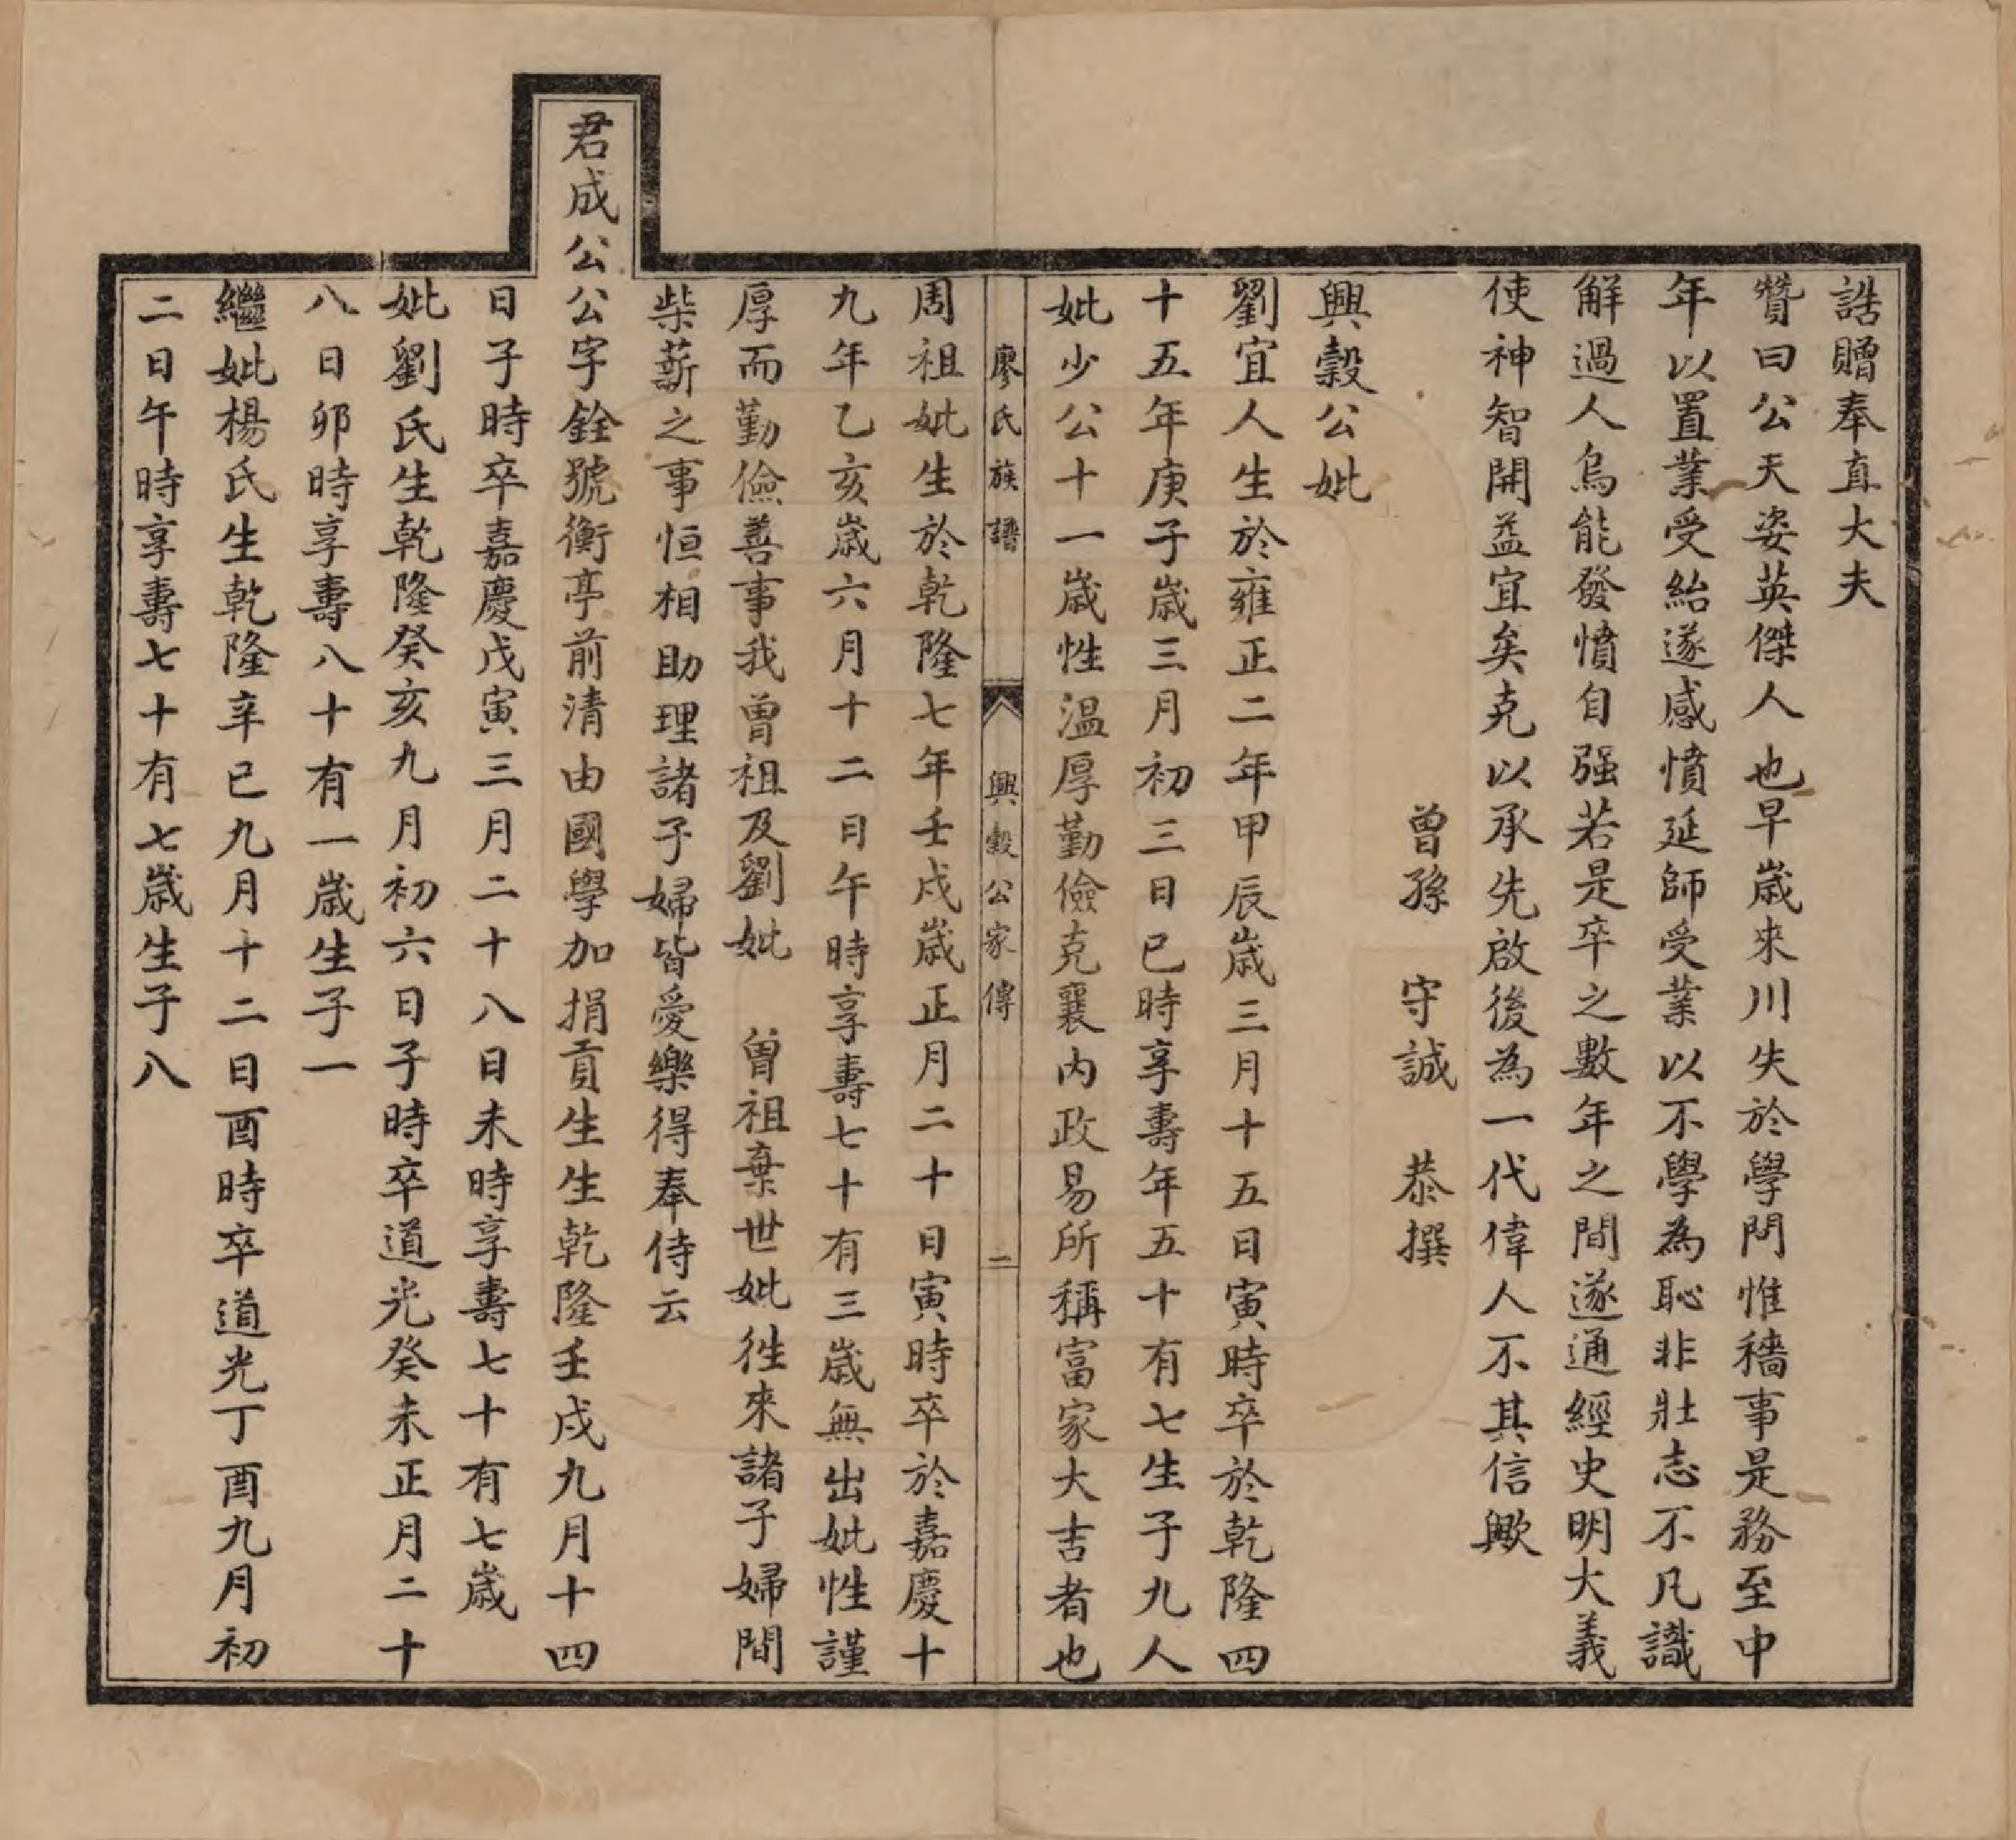 誥贈奉直大夫
贊曰公天姿英傑人也早歲來川失於學問惟穡事是務至中
年以置業受紿遂感憤延師受業以不學為恥非壯志不凡識
解過人烏能發憤自强若是卒之數年之間遂通經史明大義
使神智開益宜矣克以承先啟後為一代偉人不其信歟
曾孫　守誠　恭撰
興穀公妣
劉宜人生於雍正二年甲辰歲三月十五日寅時卒於乾隆四
十五年庚子歲三月初三日巳時享壽年五十有七生子九人
妣少公十一歲性溫厚勤儉克襄內政易所稱富家大吉者也
廖氏族譜　興穀公家傳　二
周祖妣生於乾隆七年壬戌歲正月二十日寅時卒於嘉慶十
九年乙亥歲六月十二日午時享壽七十有三歲無出妣性謹
厚而勤儉善事我曾祖及劉妣　曾祖棄世妣徃來諸子婦間
柴薪之事恒相助理諸子婦皆愛樂得奉侍云
君成公公字銓號衡亭前清由國學加捐貢生生乾隆壬戌九月十四
日子時卒嘉慶戊寅三月二十八日未時享壽七十有七歲
妣劉氏生乾隆癸亥九月初六日子時卒道光癸未正月二十
八日卯時享壽八十有一歲生子一
繼妣楊氏生乾隆辛巳九月十二日酉時卒道光丁酉九月初
二日午時享壽七十有七歲生子八